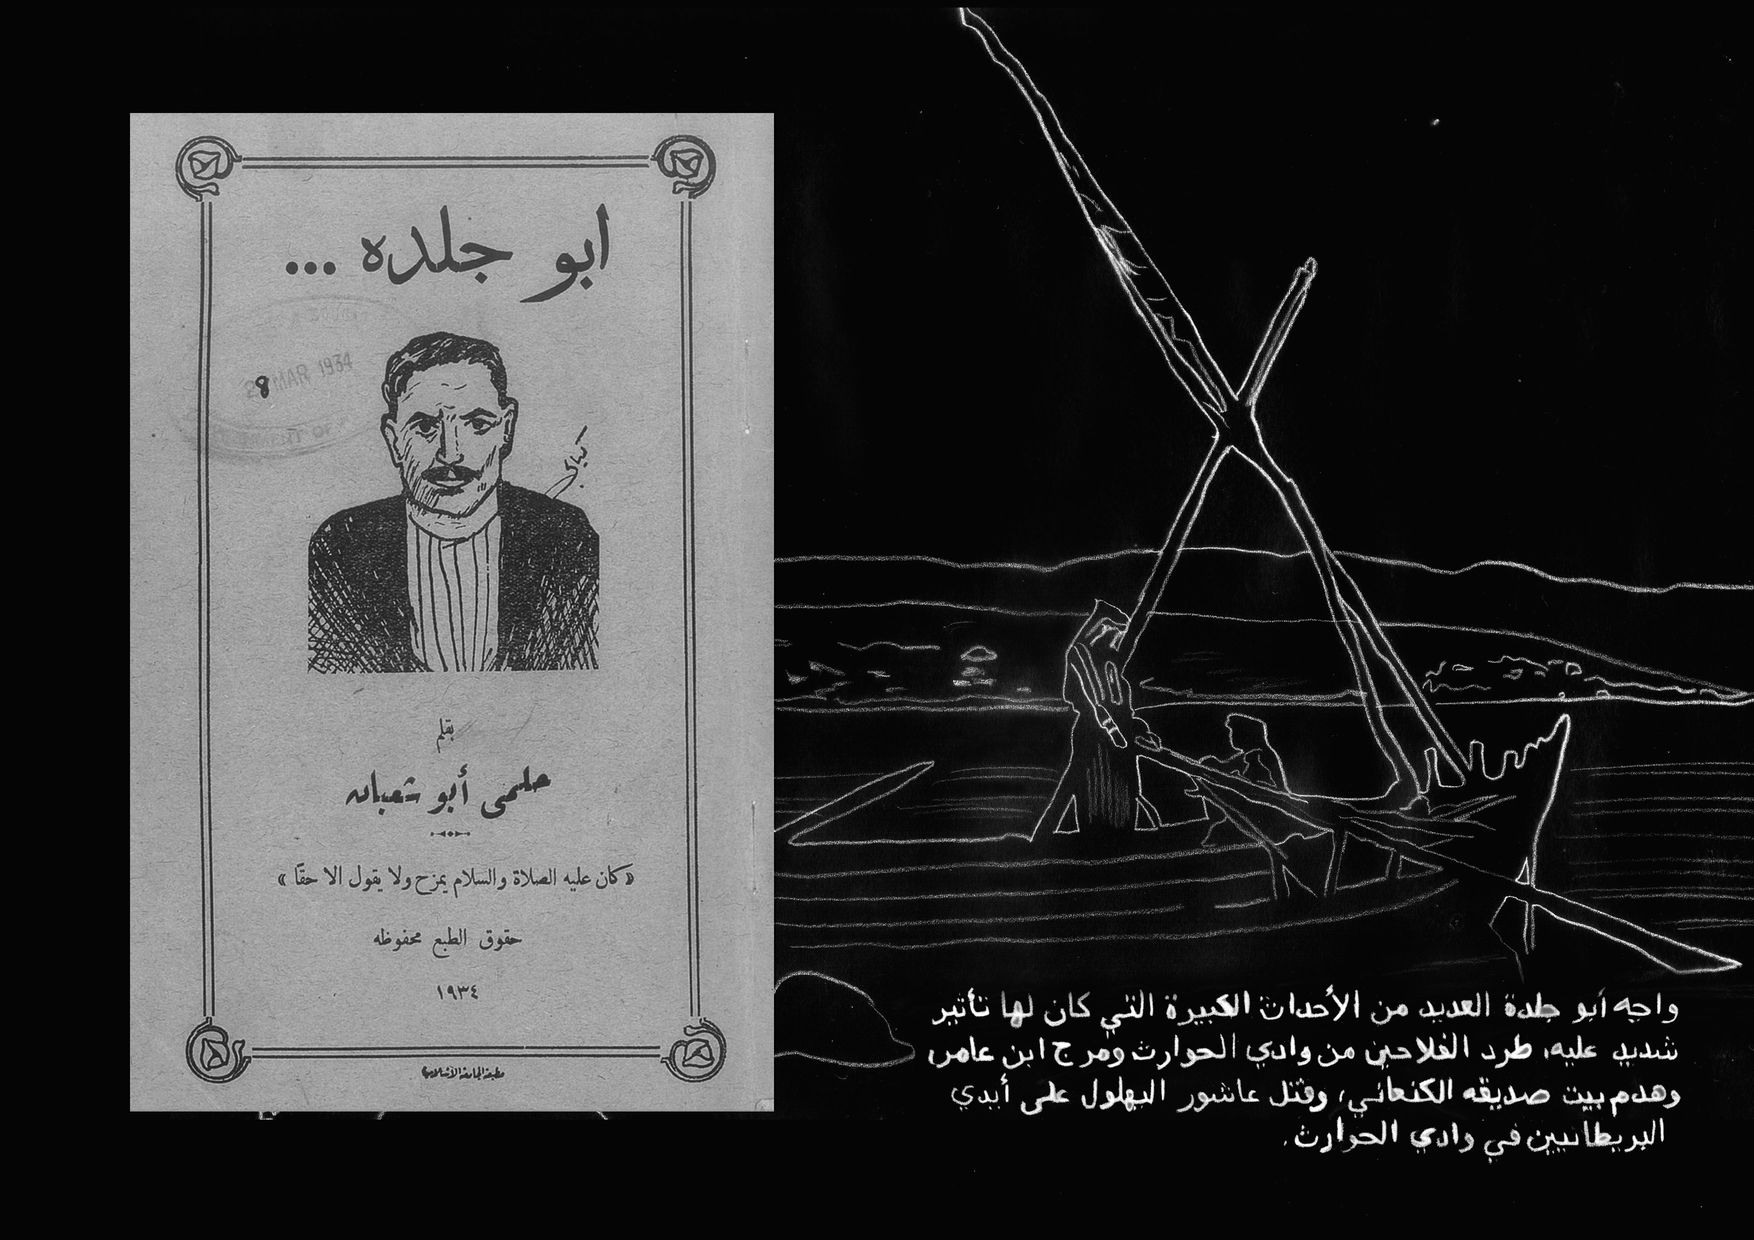 ابو جلده ...
MAR 1934
بقلم
حلمي أبو شعبان
«كان عليه الصلاة والسلام يمزح ولا يقول الا حقًا»
حقوق الطبع محفوظه
١٩٣٤
مطبعة الجامعة الاسلامية
واجه أبو جلدة العديد من الأحداث الكبيرة التي كان لها تأثير
شديد عليه، طرد الفلاحين من وادي الحوارث ومرج ابن عامر،
وهدم بيت صديقه الكنعاني، وقتل عاشور البهلول على أيدي
البريطانيين في وادي الحوارث.